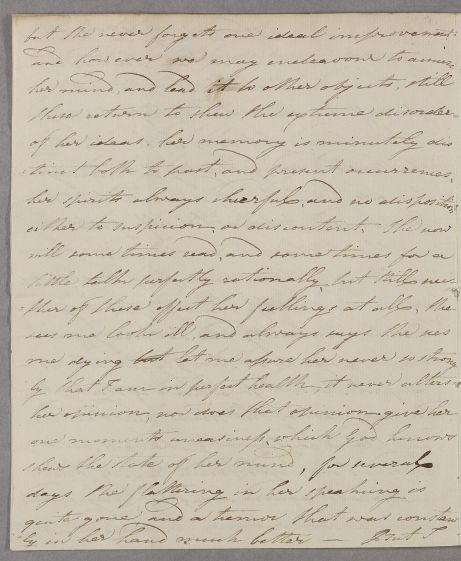 but she never forgets one ideal improvement
and however we may endeavour to amuse
her mind, and lead it to other objects, still
these return to shew the extreme disorder
of her ideas. her memory is minutely dis
tinct both to past, and present occurrences,
her spirits always cheerful, and no disposition
either to suspicion, or discontent. She now
will some times read, and some times for a
little talk perfectly rationally, but still nei-
ther of these affect her feelings at all, She
sees me look ill, and always says She sees
me dying let me assure her never so strong
ly that I am in perfect health, it never alters
her opinion, nor does that opinion give her
one moments uneasiness, which God knows
shews the state of her mind, for several
days the fluttering in her speaking is
quite gone, and a tremor that was constant
ly in her hand much better — But I